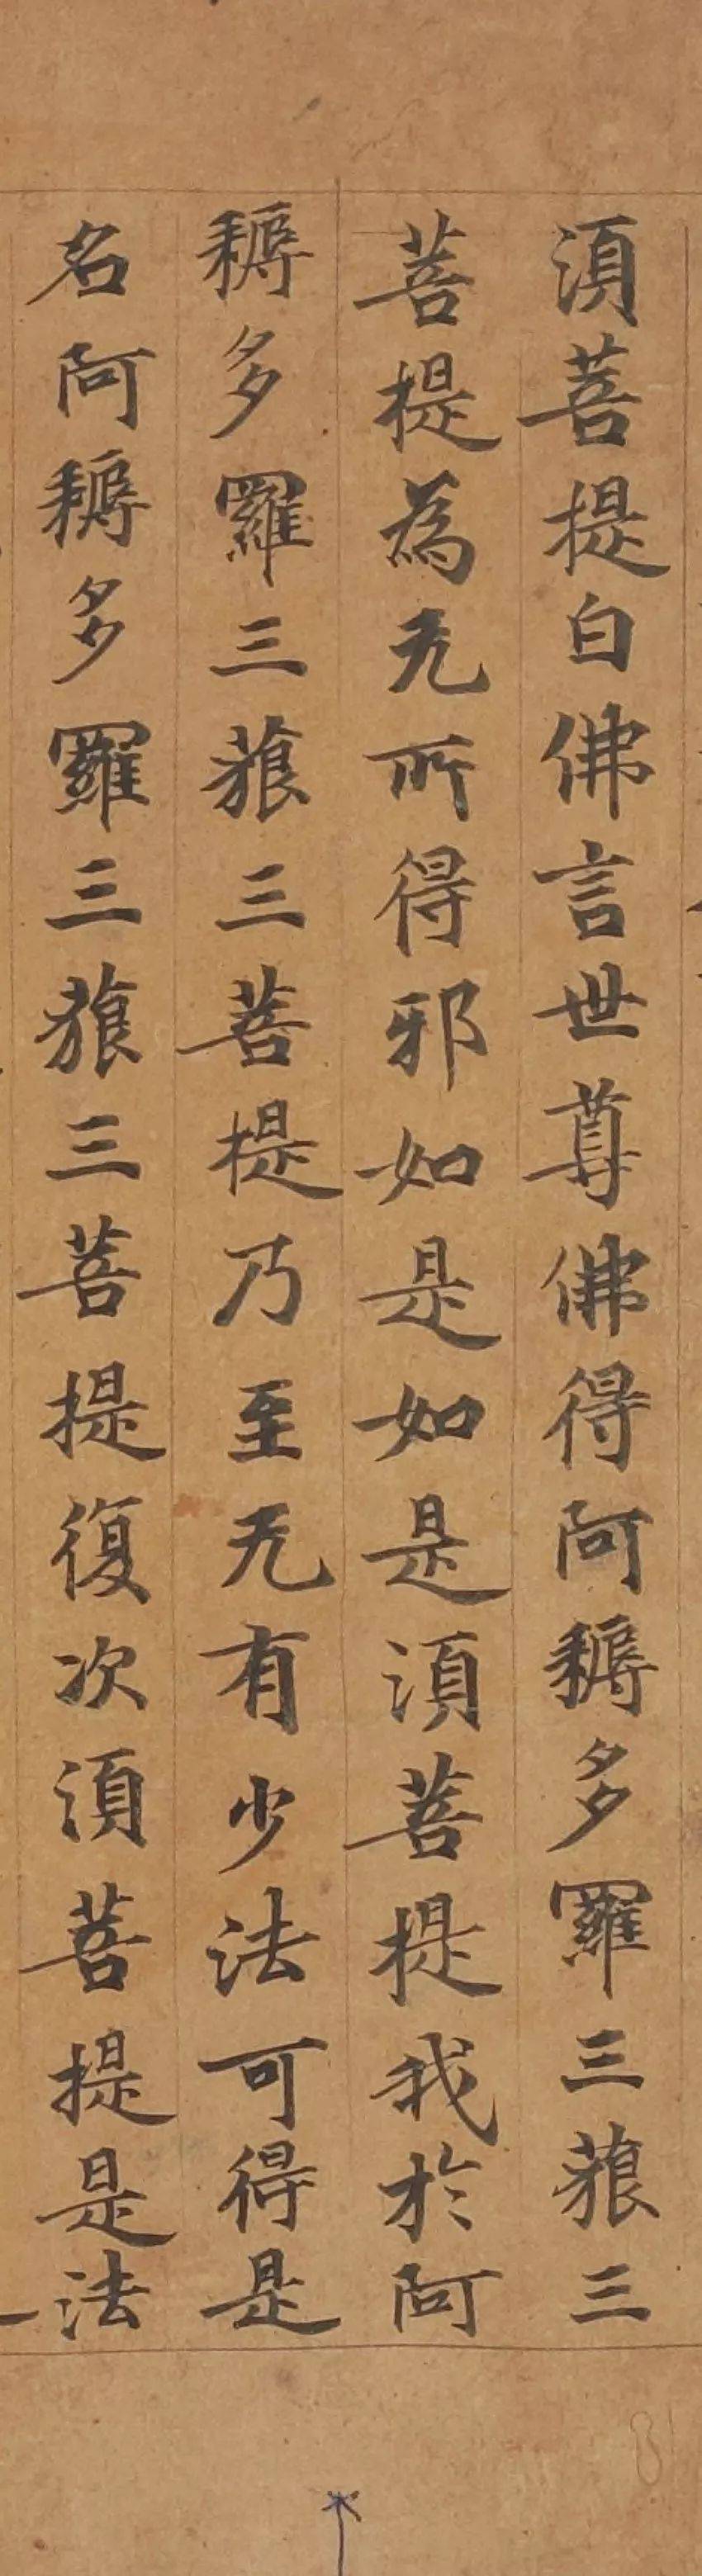 須菩提白佛言世尊佛得阿耨多羅三藐三
菩提為无所得邪如是如是須菩提我於阿
耨多羅三藐三菩提乃至无有少法可得是
名阿耨多羅三藐三菩提復次須菩提是法